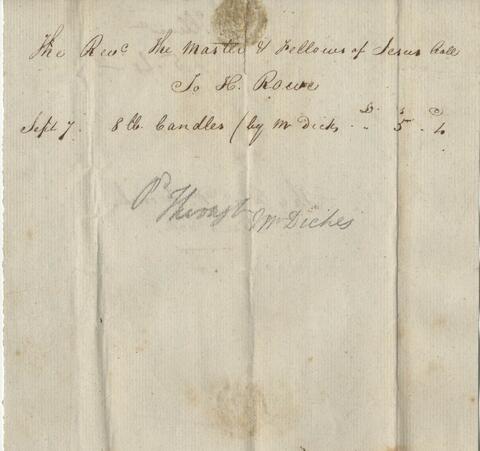 The Revd. The Master & Fellows of Jesus Coll
To H. Rowe
£ s d
Sept 7. 8 lb. Candles (by Mr Dicks .. 5. 4
Pd
Mr Diches